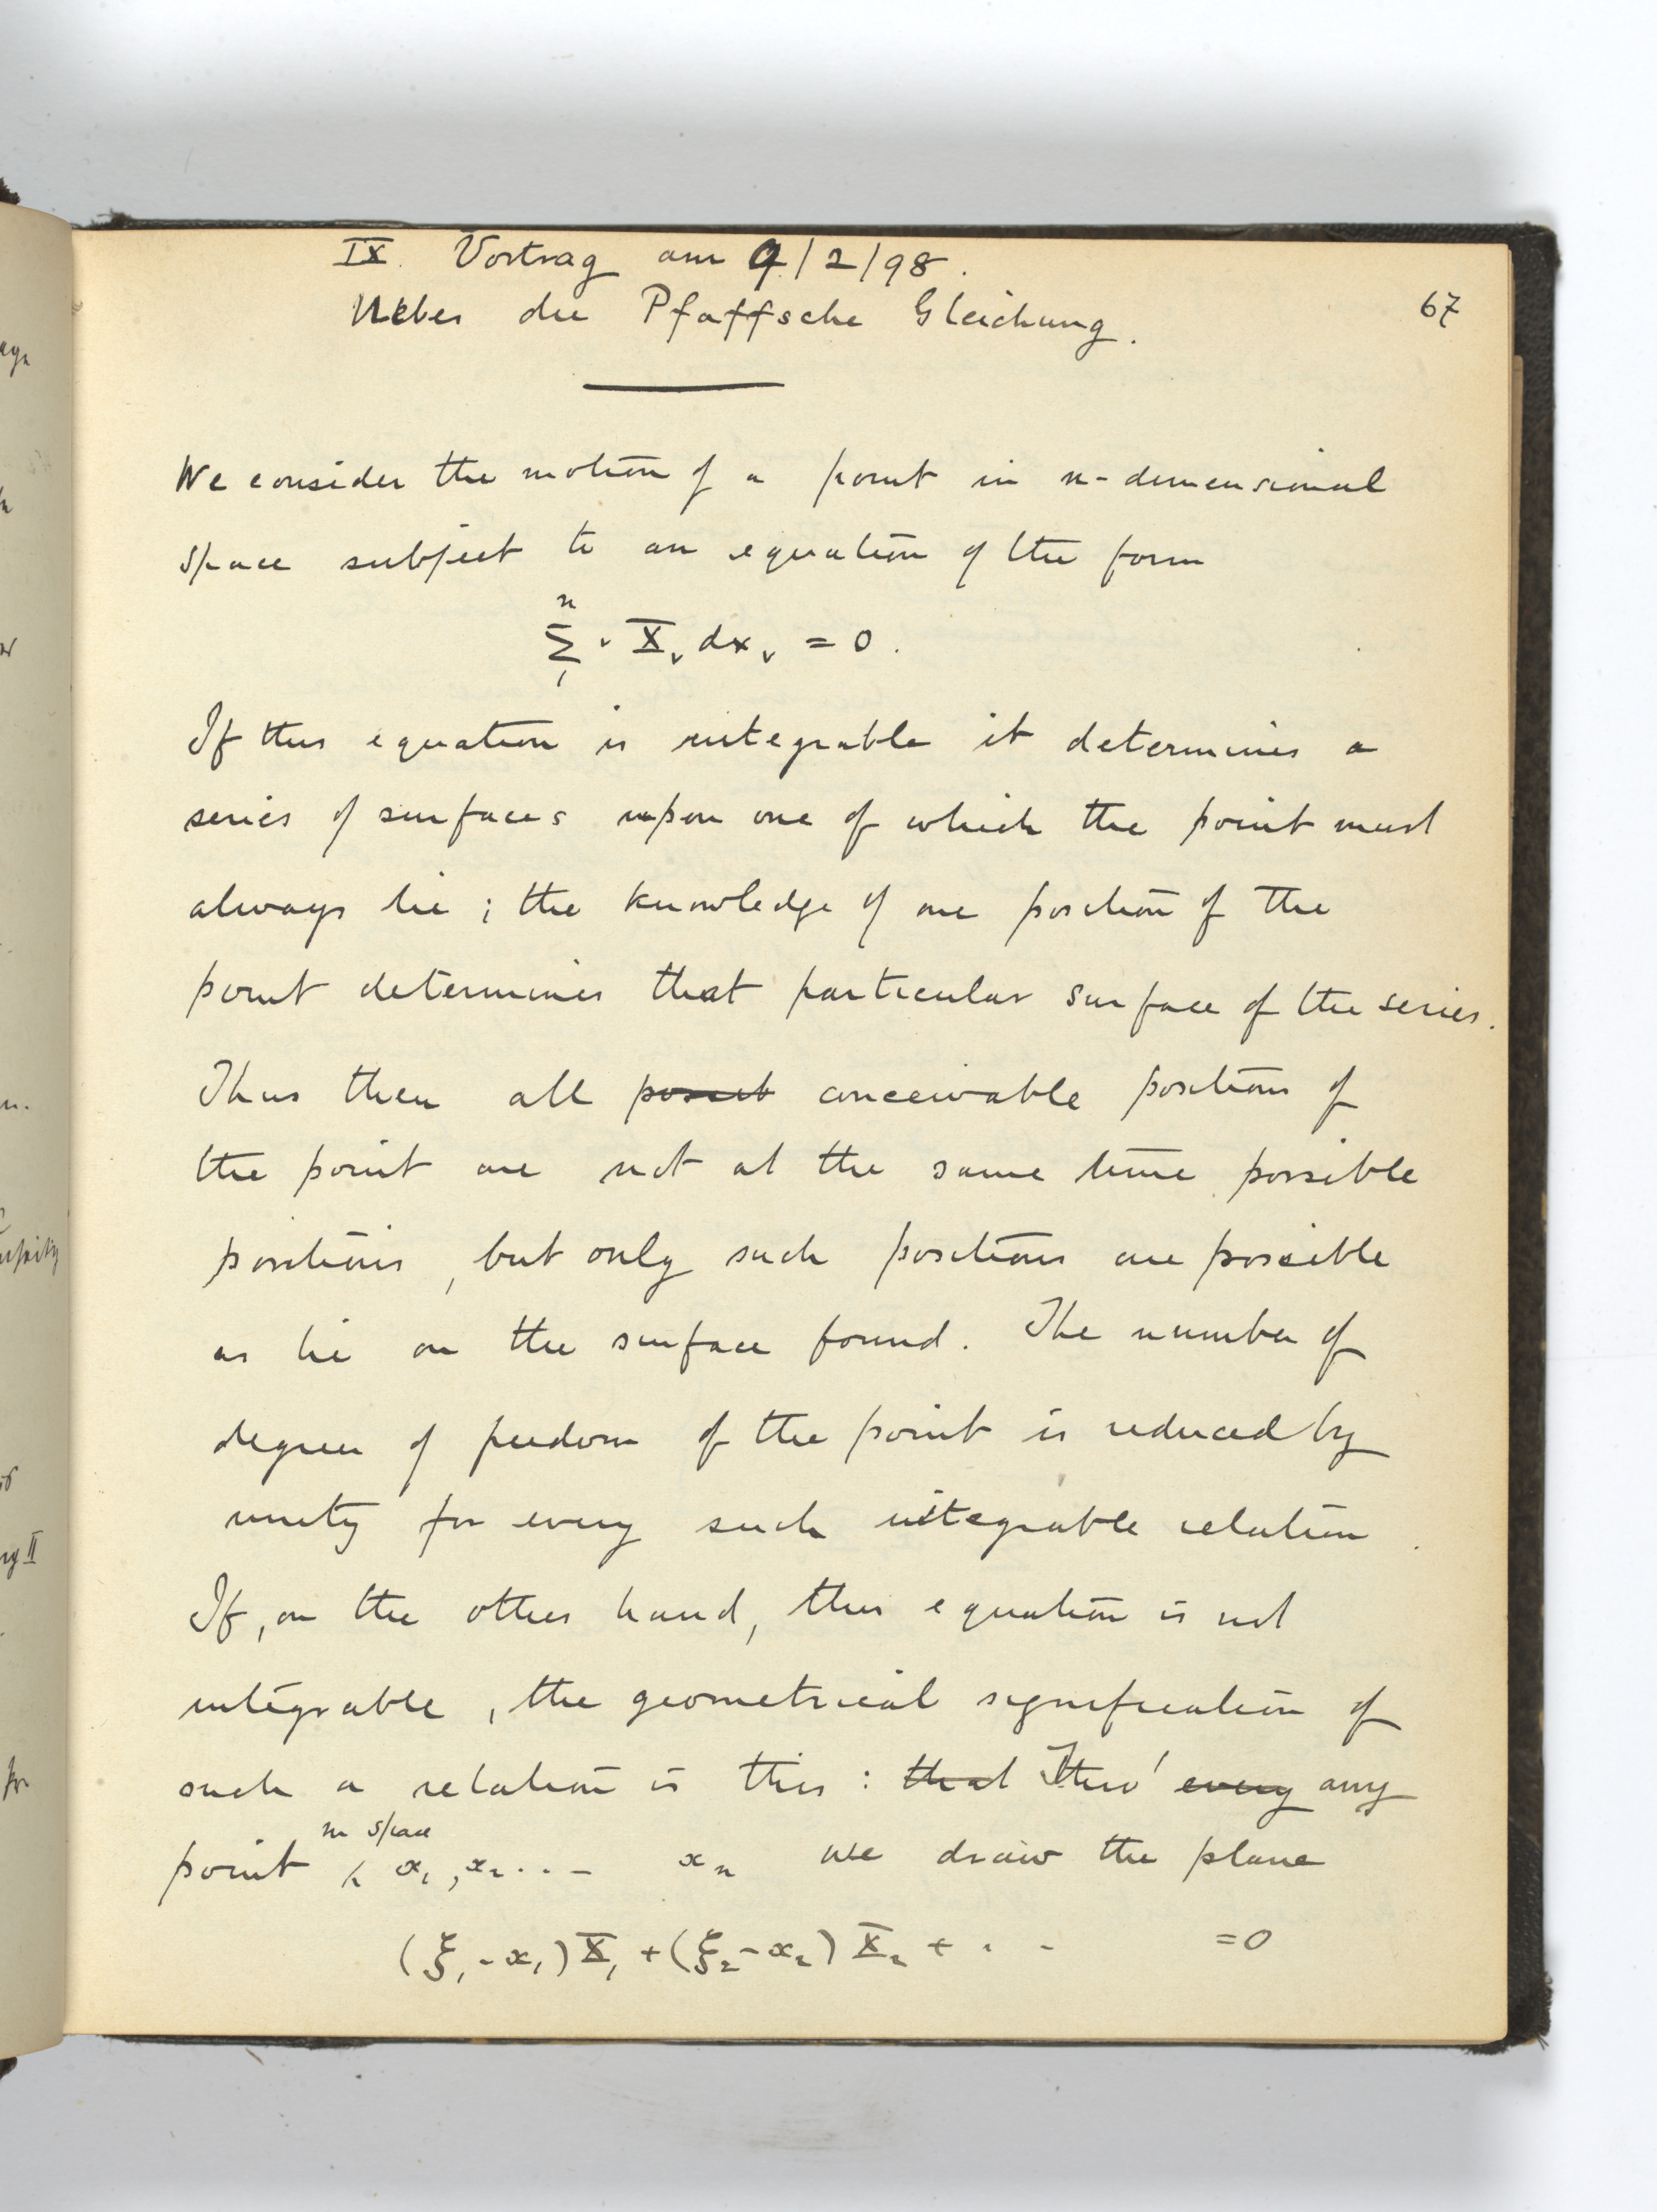 IX. Vortrag am 9/2/98.
67
Ueber die Pfaffsche Gleichung.
We consider the motion of a point in n-dimensional
space subject to an equation of the form
n
Σ ν X̄ν dxν = 0.
1
If this equation is integrable it determines a
series of surfaces upon one of which the point must
always lie; the knowledge of one position of the
point determines that particular surface of the series.
Thus then all posit conceivable positions of
the point are not at the same time possible
positions, but only such positions are possible
as lie on the surface found. The number of
degrees of freedom of the point is reduced by
unity for every such integrable relation.
If, on the other hand, this equation is not
integrable, the geometrical signification of
such a relation is this: that Thro' every any
in space
point x₁, x₂ ... xn we draw the plane
(ξ₁-x₁)X₁ + (ξ₂-x₂)X₂ + . . =0
ny II
for